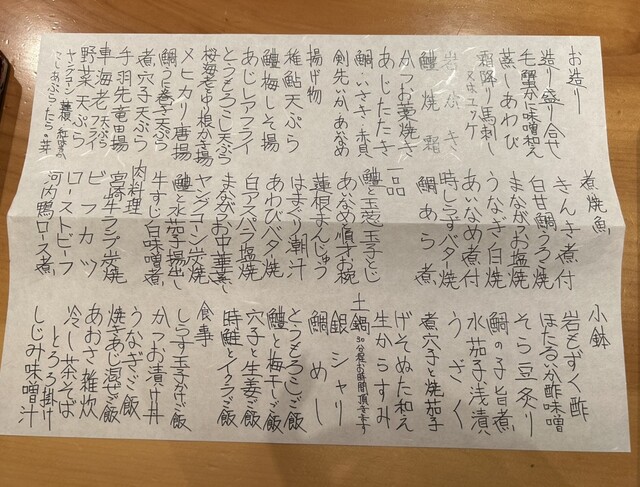 お造り
造り盛り合せ
毛蟹かに味噌和え
蒸しあわび
霜降り馬刺し
又はユッケ
岩がき
鱧焼霜
かつお藁焼き
あじたたき
鯛・いさき・赤貝
剣先いか
揚げ物
稚鮎天ぷら
鱧梅しそ揚
あじレアフライ
とうもろこし天ぷら
桜海老かき揚
メヒカリ唐揚
鯛うに巻き天ぷら
煮穴子天ぷら
手羽先竜田揚
車海老フライ 天ぷら
野菜天ぷら
ヤングコーン 蓮根 紅生姜
こしあぶら・たらの芽
煮焼魚
きんき煮付
白甘鯛うろこ焼
まながつお塩焼
うなぎ白焼
あいなめ煮付
時しらずバター焼
鯛あら煮
一品
鱧と玉葱玉子とじ
あいなめ順才お椀
蓮根まんじゅう
はまぐり潮汁
あわびバター焼
白アスパラ塩焼
まながつお中華蒸し
ヤングコーン炭焼
鱧と水茄子揚出し
牛すじ白味噌煮
肉料理
宮崎牛ランプ炭焼
ビフカツ
ローストビーフ
河内鴨ロース煮
小鉢
岩もずく酢
ほたるいか酢味噌
そら豆炙り
鯛の子旨煮
水茄子浅漬
うざく
煮穴子と焼茄子
げそぬた和え
生からすみ
土鍋 30分程お時間頂きます
銀シャリ
鯛めし
とうもろこしご飯
鱧と梅干しご飯
穴子と生姜ご飯
時鮭とイクラご飯
食事
しらす玉子かけご飯
かつお漬け丼
うなぎご飯
焼きあじ混ぜご飯
あおさ雑炊
冷し茶そば
とろろ掛け
しじみ味噌汁